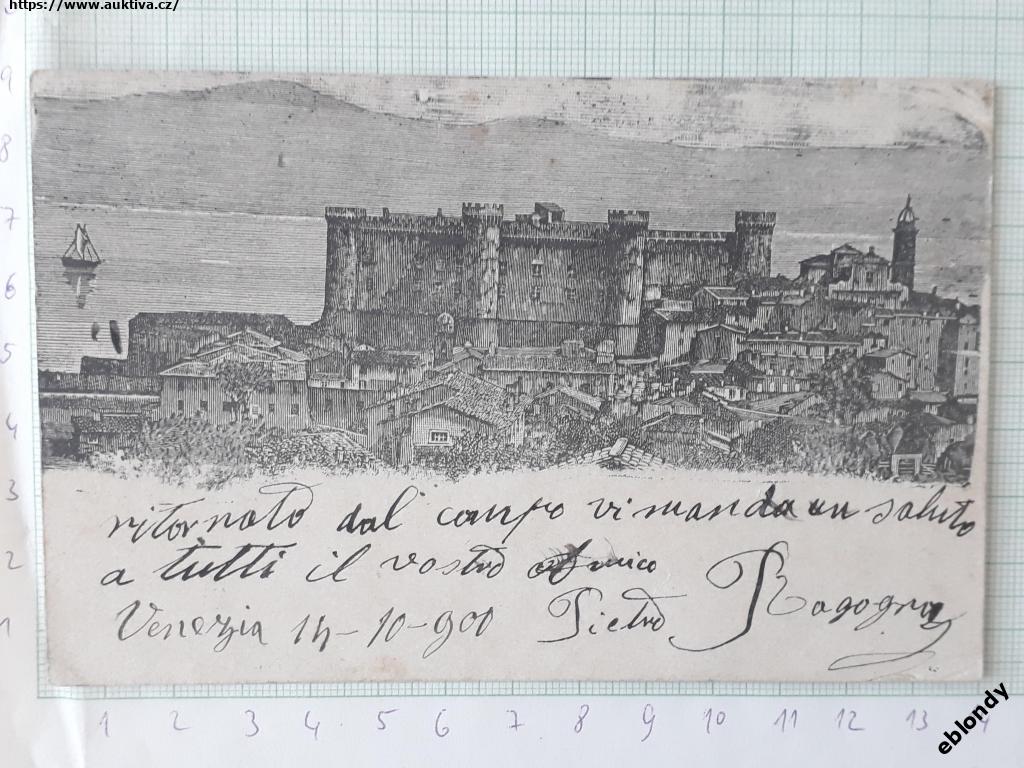 https://www.auktiva.cz/
9
8
7
6
5
4
3
2
1
ritornato dal campo vi manda un saluto
a tutti il vostro Amico
Venezia 14-10-900 Pietro Ragogna
1 2 3 4 5 6 7 8 9 10 11 12 13 14
eblondy